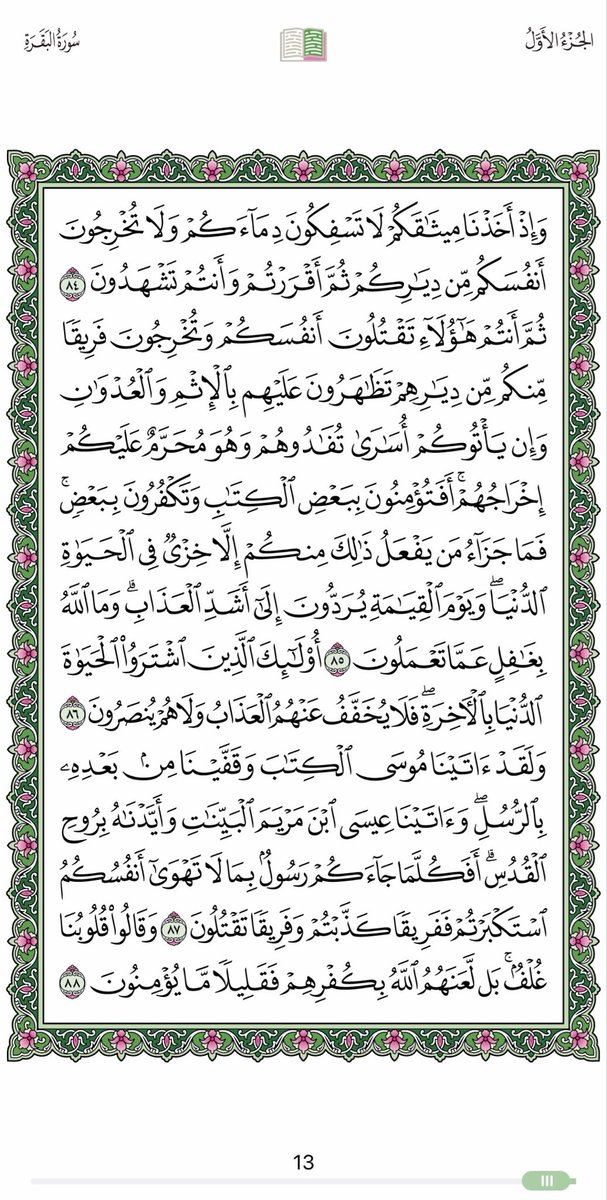 الجُزْءُ الأَوَّلُ
سُورَةُ البَقَرَةِ
وَإِذۡ أَخَذۡنَا مِيثَٰقَكُمۡ لَا تَسۡفِكُونَ دِمَآءَكُمۡ وَلَا تُخۡرِجُونَ
أَنفُسَكُم مِّن دِيَٰرِكُمۡ ثُمَّ أَقۡرَرۡتُمۡ وَأَنتُمۡ تَشۡهَدُونَ ٨٤
ثُمَّ أَنتُمۡ هَٰٓؤُلَآءِ تَقۡتُلُونَ أَنفُسَكُمۡ وَتُخۡرِجُونَ فَرِيقٗا
مِّنكُم مِّن دِيَٰرِهِمۡ تَظَٰهَرُونَ عَلَيۡهِم بِٱلۡإِثۡمِ وَٱلۡعُدۡوَٰنِ
وَإِن يَأۡتُوكُمۡ أُسَٰرَىٰ تُفَٰدُوهُمۡ وَهُوَ مُحَرَّمٌ عَلَيۡكُمۡ
إِخۡرَاجُهُمۡۚ أَفَتُؤۡمِنُونَ بِبَعۡضِ ٱلۡكِتَٰبِ وَتَكۡفُرُونَ بِبَعۡضٖۚ
فَمَا جَزَآءُ مَن يَفۡعَلُ ذَٰلِكَ مِنكُمۡ إِلَّا خِزۡيٞ فِي ٱلۡحَيَوٰةِ
ٱلدُّنۡيَاۖ وَيَوۡمَ ٱلۡقِيَٰمَةِ يُرَدُّونَ إِلَىٰٓ أَشَدِّ ٱلۡعَذَابِۗ وَمَا ٱللَّهُ
بِغَٰفِلٍ عَمَّا تَعۡمَلُونَ ٨٥ أُوْلَٰٓئِكَ ٱلَّذِينَ ٱشۡتَرَوُاْ ٱلۡحَيَوٰةَ
ٱلدُّنۡيَا بِٱلۡأٓخِرَةِۖ فَلَا يُخَفَّفُ عَنۡهُمُ ٱلۡعَذَابُ وَلَا هُمۡ يُنصَرُونَ ٨٦
وَلَقَدۡ ءَاتَيۡنَا مُوسَى ٱلۡكِتَٰبَ وَقَفَّيۡنَا مِنۢ بَعۡدِهِۦ
بِٱلرُّسُلِۖ وَءَاتَيۡنَا عِيسَى ٱبۡنَ مَرۡيَمَ ٱلۡبَيِّنَٰتِ وَأَيَّدۡنَٰهُ بِرُوحِ
ٱلۡقُدُسِۗ أَفَكُلَّمَا جَآءَكُمۡ رَسُولُۢ بِمَا لَا تَهۡوَىٰٓ أَنفُسُكُمُ
ٱسۡتَكۡبَرۡتُمۡ فَفَرِيقٗا كَذَّبۡتُمۡ وَفَرِيقٗا تَقۡتُلُونَ ٨٧ وَقَالُواْ قُلُوبُنَا
غُلۡفُۢۚ بَل لَّعَنَهُمُ ٱللَّهُ بِكُفۡرِهِمۡ فَقَلِيلٗا مَّا يُؤۡمِنُونَ ٨٨
13